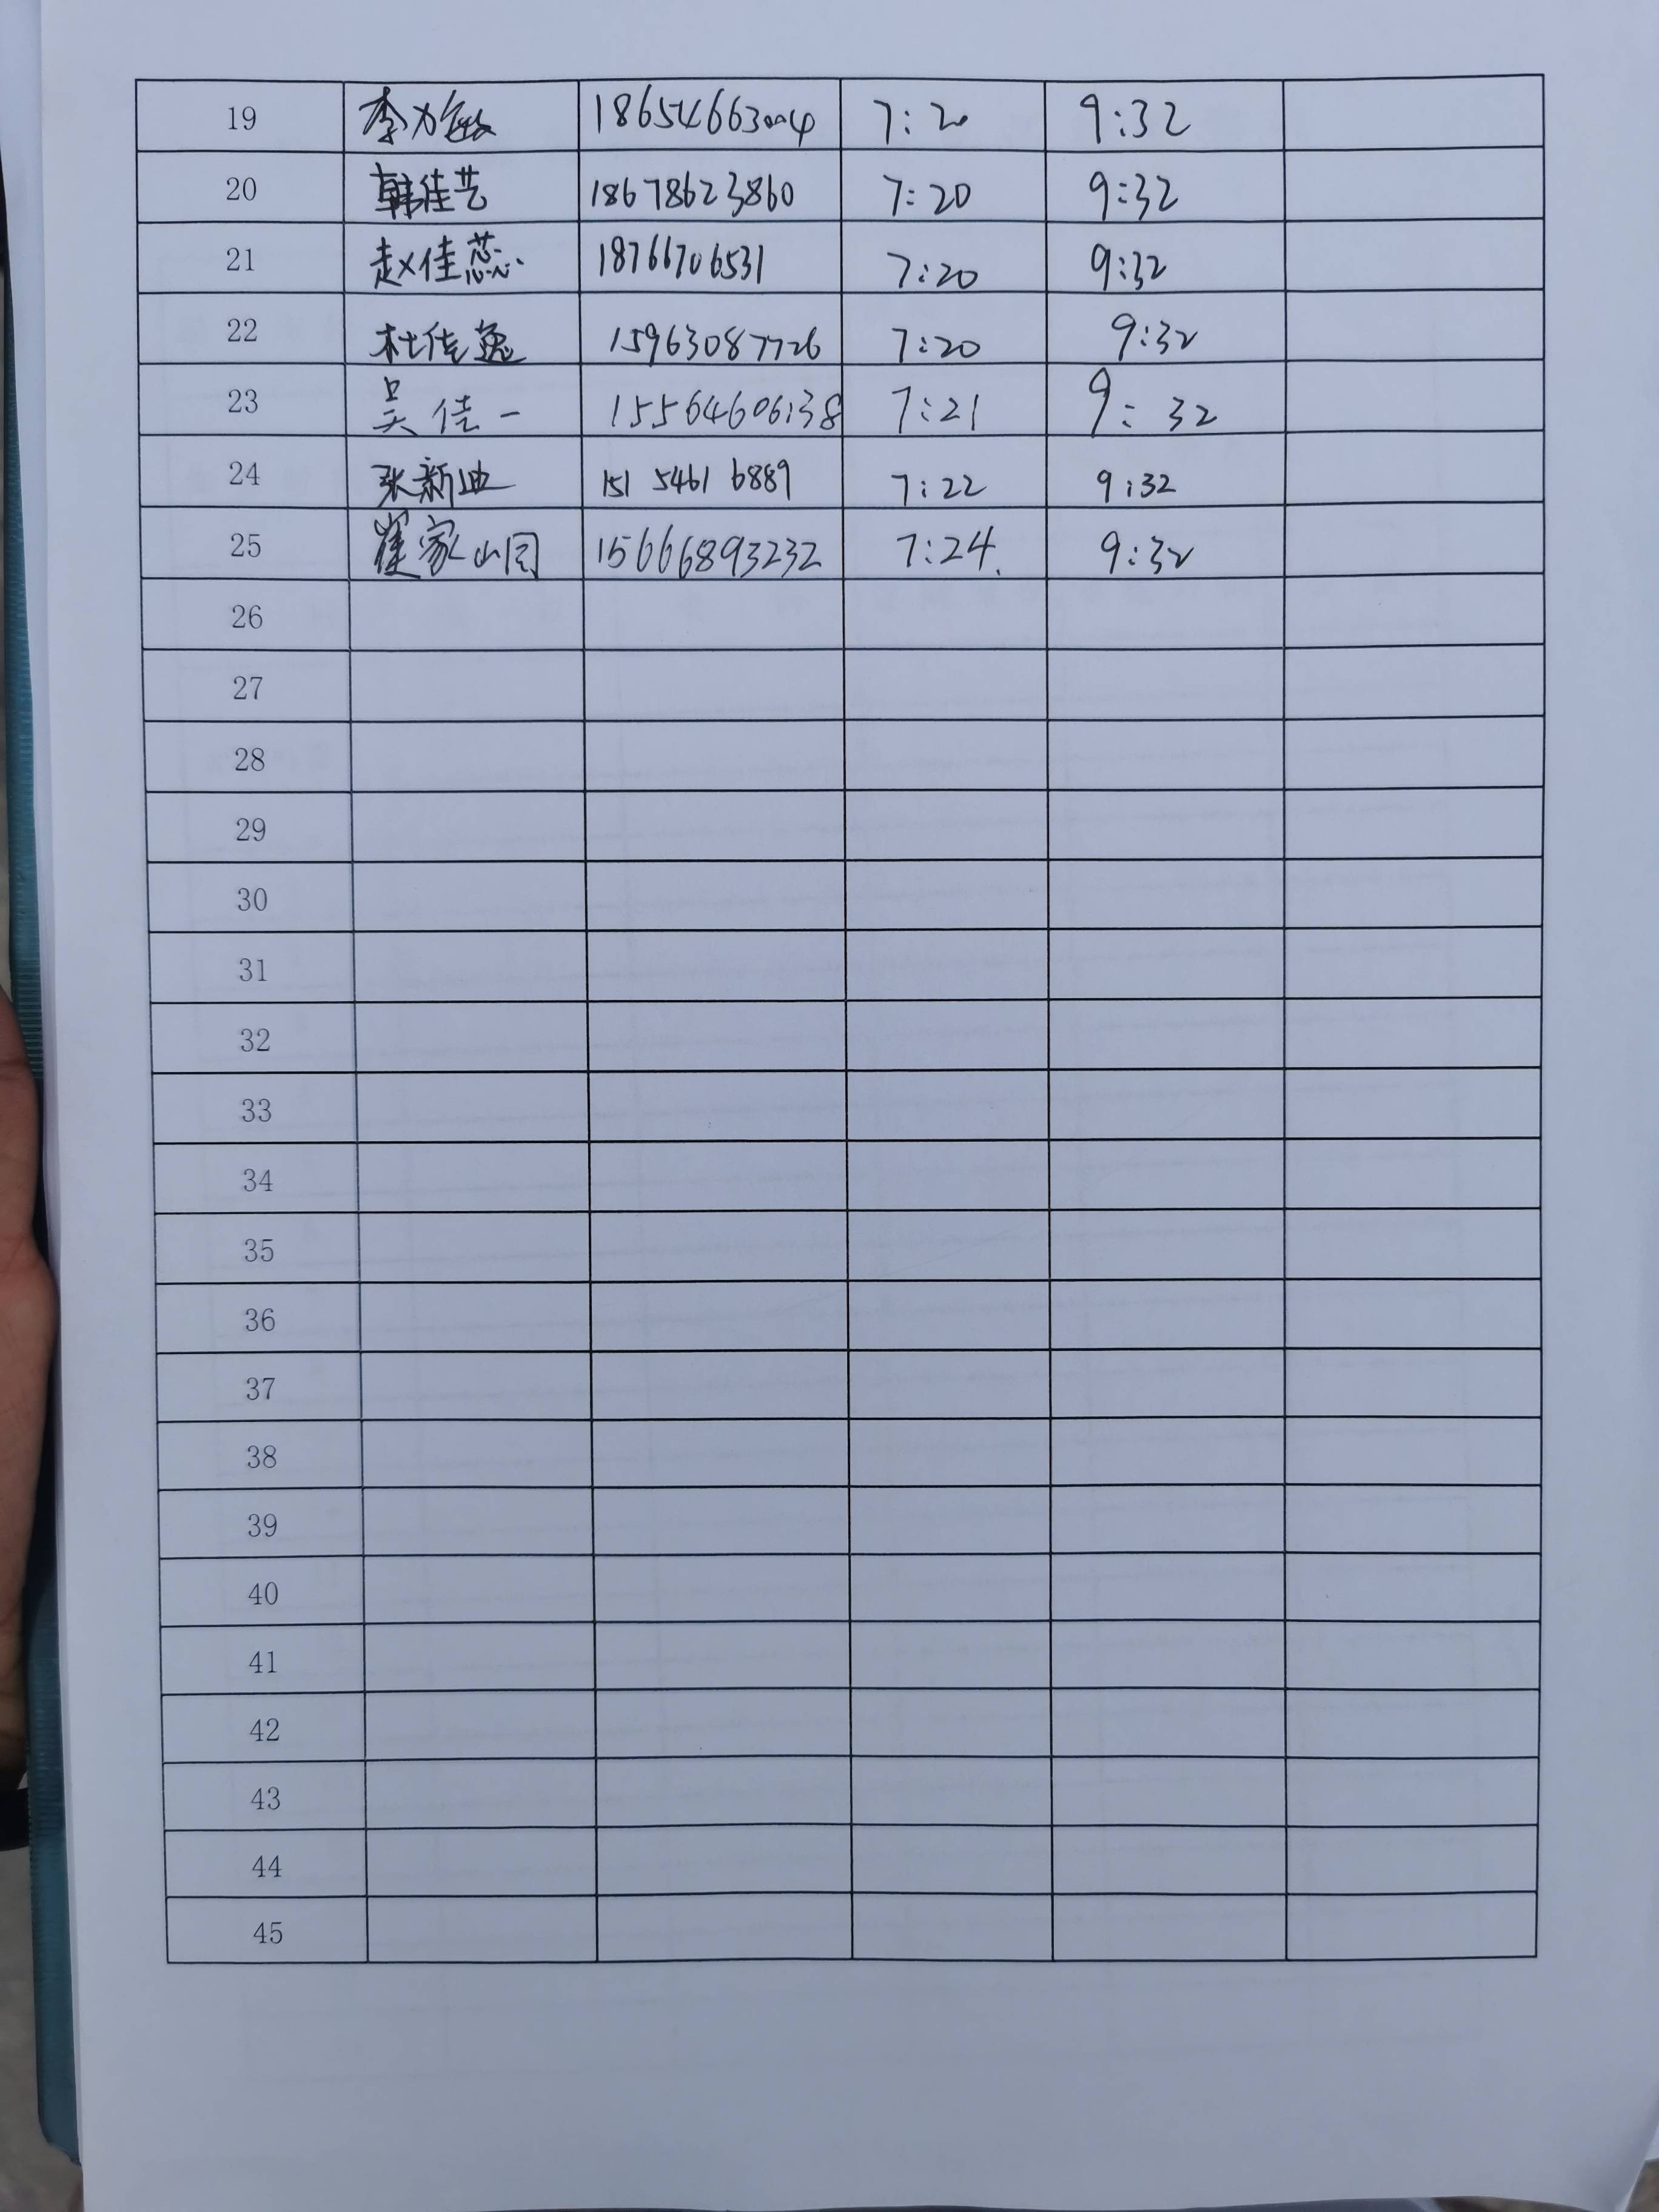 19 李为敏 18654663004 7:20 9:32
20 韩佳艺 18678623860 7:20 9:32
21 赵佳蕊 18766706531 7:20 9:32
22 杜佳逸 15963087726 7:20 9:32
23 吴佳一 15564606138 7:21 9:32
24 张新迪 151 5461 6889 7:22 9:32
25 崔家山同 15666893232 7:24. 9:32
26
27
28
29
30
31
32
33
34
35
36
37
38
39
40
41
42
43
44
45